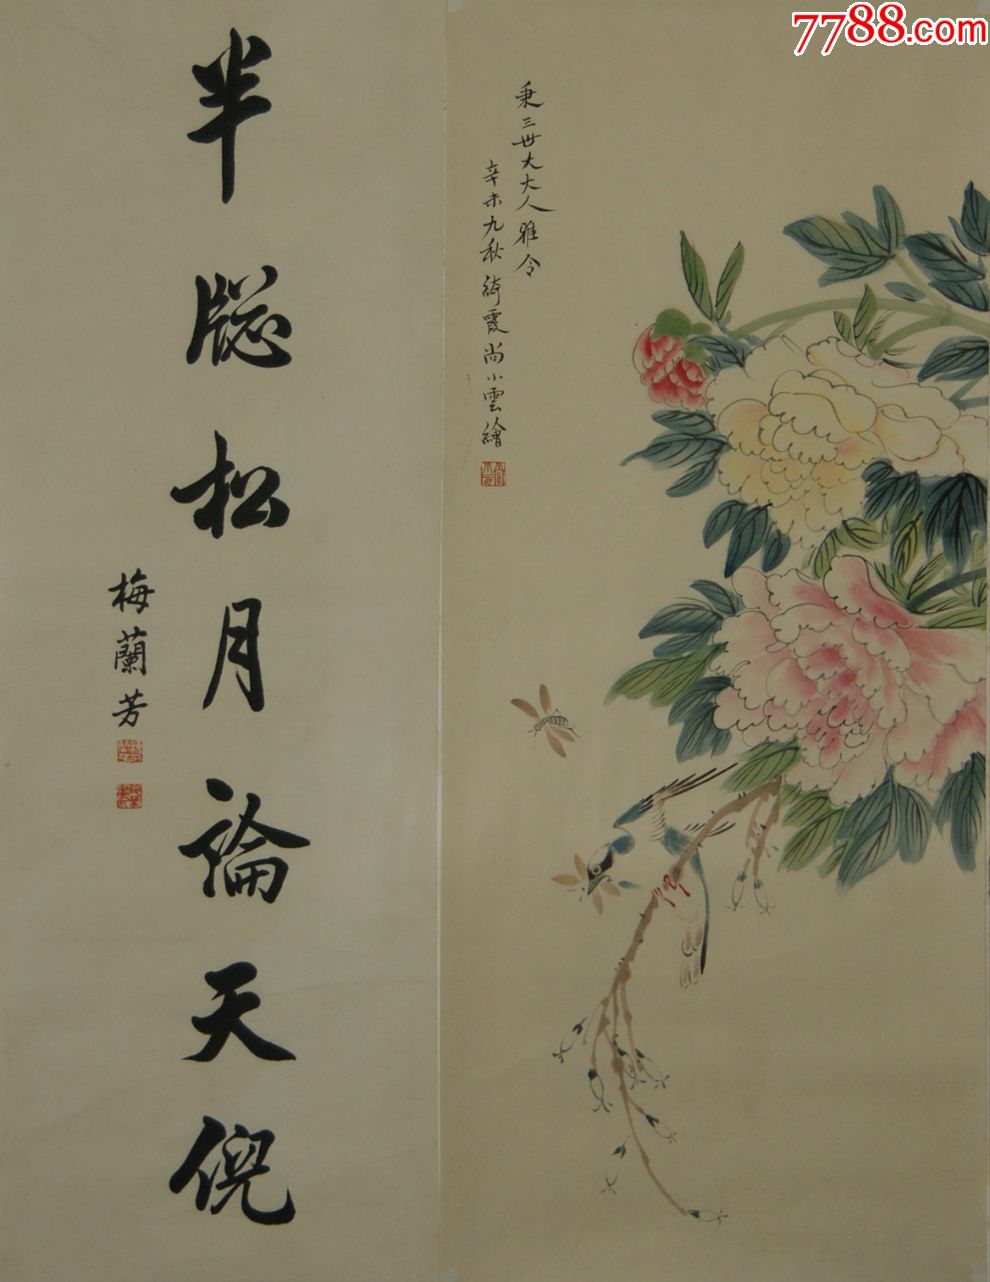 7788.com
秉三世大大人雅令
辛未九秋綺霞尚小雲繪
半牕松月論天倪
梅蘭芳